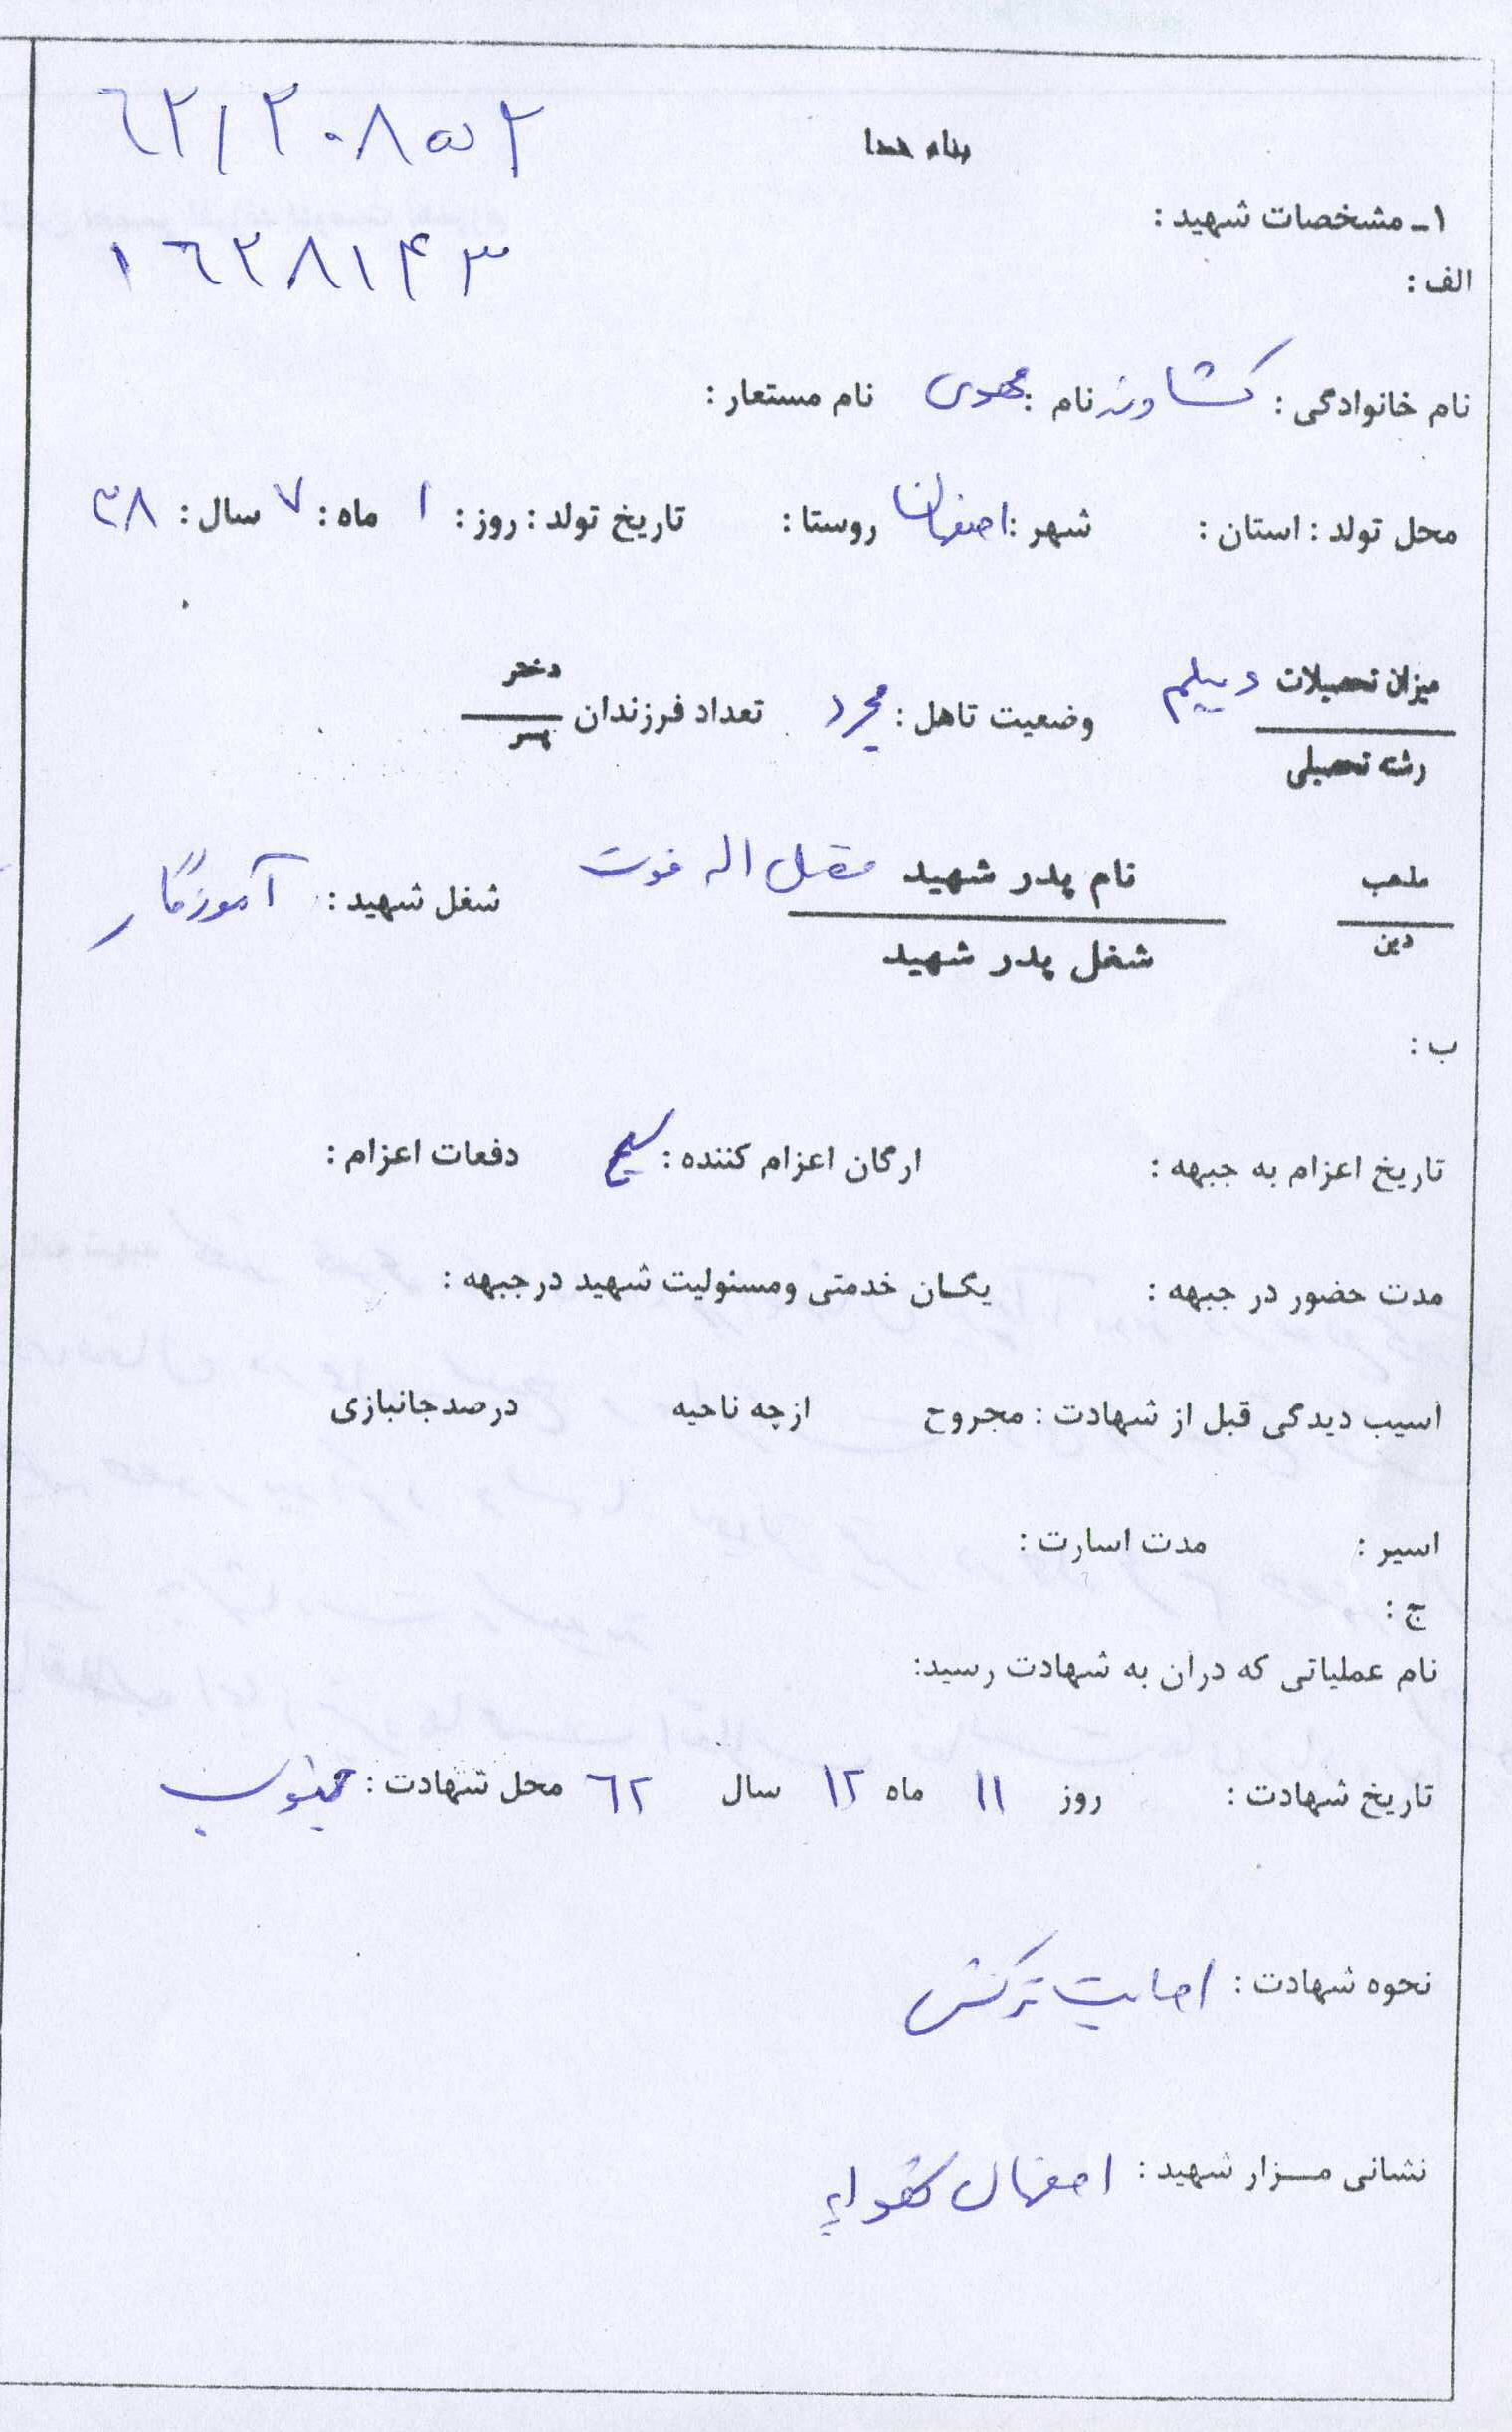 ۶۲/۲۰۸۵۲
بنام خدا
۱۶۲۸۱۴۳
۱ـ مشخصات شهید :
الف :
نام خانوادگی : کشاورز نام : مهدی نام مستعار :
محل تولد : استان : شهر : اصفهان روستا : تاریخ تولد : روز : ۱ ماه : ۷ سال : ۳۸
میزان تحصیلات دیپلم وضعیت تاهل : مجرد تعداد فرزندان دختر
رشته تحصیلی پسر
مذهب نام پدر شهید فضل اله فوت شغل شهید : آموزگار
دین شغل پدر شهید
ب :
تاریخ اعزام به جبهه : ارگان اعزام کننده : بسیج دفعات اعزام :
مدت حضور در جبهه : یگان خدمتی ومسئولیت شهید درجبهه :
آسیب دیدگی قبل از شهادت : مجروح ازچه ناحیه درصدجانبازی
اسیر : مدت اسارت :
ج :
نام عملیاتی که درآن به شهادت رسید:
تاریخ شهادت : روز ۱۱ ماه ۱۲ سال ۶۲ محل شهادت : جنوب
نحوه شهادت : اصابت ترکش
نشانی مزار شهید : اصفهان